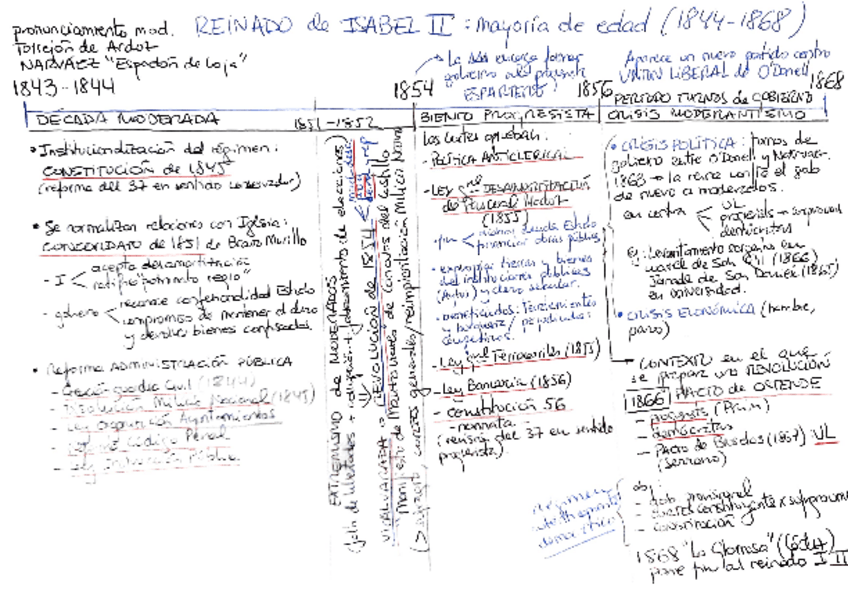 pronunciamiento mod.
Torrejón de Ardoz
NARVÁEZ "Espadón de Loja"
1843-1844
REINADO de ISABEL II : mayoría de edad (1844-1868)
1854
→ La
gobierno
ESPARTERO
1856
Aparece un nuevo partido centro
UNIÓN LIBERAL de O'Donell
1868
DÉCADA MODERADA
1851-1852
BIENIO PROGRESISTA
PERIODO TURNOS de GOBIERNO
CRISIS MODERANTISMO
• Institucionalización del régimen:
CONSTITUCIÓN de 1845
(reforma del 37 en sentido conservador)
• Se normalizan relaciones con Iglesia:
CONCORDATO de 1851 de Bravo Murillo
- I < acepta desamortización
"patronato regio"
- gobierno < reconoce confesionalidad Estado
compromiso de mantener el clero
y devolver bienes confiscados
• Reforma ADMINISTRACIÓN PÚBLICA
- Creación guardia Civil (1844)
- Disolución Milicia Nacional (1845)
- Ley Organización Ayuntamientos
- Código Penal
- Ley Instrucción Pública
EXTREMISMO de MODERADOS
(falta de libertades + corrupción + falseamiento de elecciones)
VICALVARADA → REVOLUCIÓN DE 1854
Manifiesto de Manzanares de Cánovas del Castillo
(→ sufragio, cortes generales / reimplantación Milicia Nacional
Las Cortes aprueban:
- POLÍTICA ANTICLERICAL
- LEY DESAMORTIZACIÓN
de Pascual Madoz
(1855)
deuda Estado
financiar obras públicas
- expropia tierras y bienes
del instituciones públicas
(Aytos) y clero secular.
- beneficiados: Terratenientes
y burguesía /
campesinos.
- Ley Ferrocarriles (1855)
- Ley Bancaria (1856)
- Constitución 56
- nonnata
(revisión del 37 en sentido
progresista).
• CRISIS POLÍTICA: turnos de
gobierno entre O'Donell y Narváez.
1863 → la reina confía el gob
de nuevo a moderados.
en contra < UL
progresists →
demócratas
Ej: Levantamiento sargentos en
cuartel de San Gil (1866)
Jornada de San Daniel (1865)
en universidad.
• CRISIS ECONÓMICA (hambre,
paro)
→ CONTEXTO en el que
se prepara una REVOLUCIÓN
1866 PACTO de OSTENDE
- progresists (Prim)
- demócratas
- Pacto de Bruselas (1867) UL
(Serrano)
obj:
- gob provisional
- cortes constituyente x sufragio
- constitución
1868 "La Gloriosa"
pone fin al reinado I II